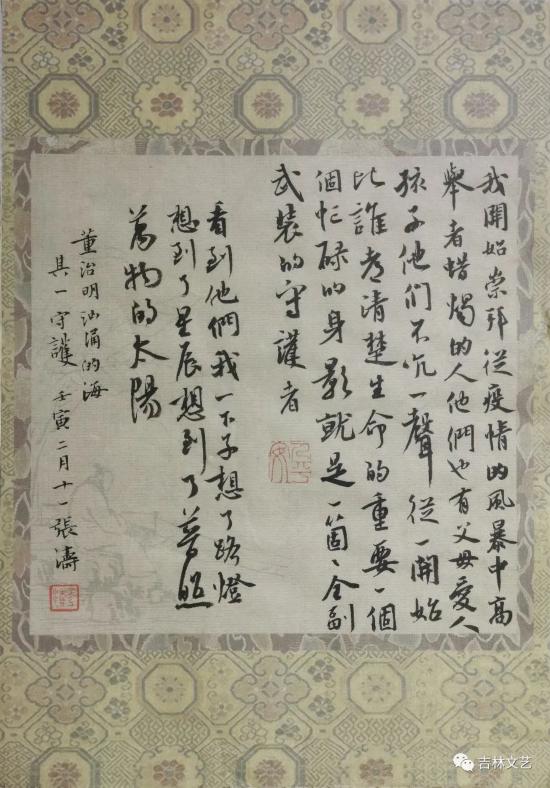 我開始崇拜從疫情的風暴中高
舉者蜡燭的人他們也有父母愛人
孩子他們不吭一聲從一開始
比誰都清楚生命的重要一個
個忙碌的身影就是一箇、全副
武裝的守護者
看到他們我一下子想了路燈
想到了星辰想到了普照
萬物的太陽
董治明汹涌的海
其一守護 壬寅二月十一張濤
吉林文艺